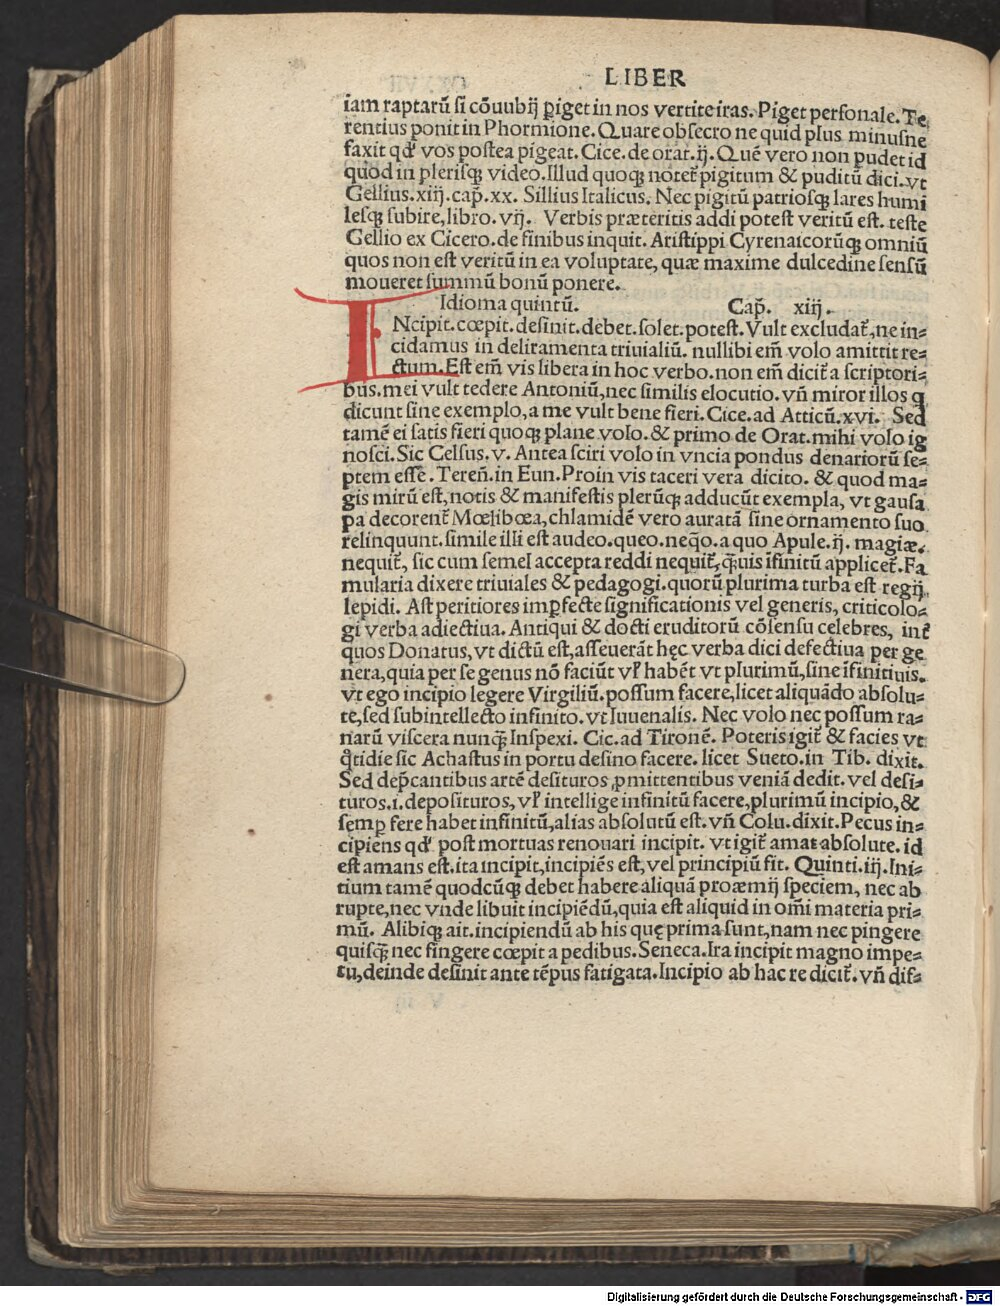 LIBER
iam raptarū si cōuubij p̲iget in nos vertite iras. Piget personale. Te
rentius ponit in Phormione. Quare obsecro ne quid plus minusne
faxit qđ vos postea pigeat. Cice. de orat. ij. Quē vero non pudet id
quod in plerisqꝫ video. Illud quoqꝫ notet᷑ pigitum & puditū dici. vt
Gellius. xiij. cap̄. xx. Sillius Italicus. Nec pigitū patriosqꝫ lares humi
lesqꝫ subire, libro. vij. Verbis præteritis addi potest veritū est. teste
Gellio ex Cicero. de finibus inquit. Aristippi Cyrenaicorūqꝫ omniū
quos non est veritū in ea voluptate, quæ maxime dulcedine sensū
moueret summū bonū ponere.
Idioma quintū. Cap̄. xiij.
INcipit. cœpit. desinit. debet. solet. potest. Vult excludat᷑, ne in⸗
cidamus in deliramenta triuialiū. nullibi em̄ volo amittit re⸗
ctum. Est em̄ vis libera in hoc verbo. non em̄ dicit᷑ a scriptori⸗
bus. mei vult tedere Antoniū, nec similis elocutio. vn̄ miror illos q
dicunt sine exemplo, a me vult bene fieri. Cice. ad Atticū. xvi. Sed
tamē ei satis fieri quoqꝫ plane volo. & primo de Orat. mihi volo ig
nosci. Sic Celsus. v. Antea sciri volo in vncia pondus denariorū se⸗
ptem esse. Teren̄. in Eun. Proin vis taceri vera dicito. & quod ma⸗
gis mirū est, notis & manifestis plerūqꝫ adducūt exempla, vt gausa
pa decorent᷑ Mœlibœa, chlamidē vero auratā sine ornamento suo
relinquunt. simile illi est audeo. queo. neq̄o. a quo Apule. ij. magiæ.
nequit᷑, sic cum semel accepta reddi nequit᷑, q̄uis īfinitū applicet᷑. Fa
mularia dixere triuiales & pedagogi. quorū plurima turba est regij
lepidi. Ast peritiores imp̲fecte significationis vel generis, criticolo⸗
gi verba adiectiua. Antiqui & docti eruditorū cōsensu celebres, int᷑
quos Donatus, vt dictū est, asseuerāt hęc verba dici defectiua per ge
nera, quia per se genus nō faciūt vꝉ habēt vt plurimū, sine īfinitiuis.
vt ego incipio legere Virgiliū. possum facere, licet aliquādo absolu⸗
te, sed subintellecto infinito. vt Iuuenalis. Nec volo nec possum ra⸗
narū viscera nunq̄ Inspexi. Cic. ad Tironē. Poteris igit᷑ & facies vt
q̄tidie sic Achastus in portu desino facere. licet Sueto. in Tib. dixit.
Sed dep̄cantibus artē desituros ꝓmittentibus veniā dedit. vel desi⸗
turos. i. deposituros, vꝉ intellige infinitū facere, plurimū incipio, &
semp̲ fere habet infinitū, alias absolutū est. vn̄ Colu. dixit. Pecus in⸗
cipiens qđ post mortuas renouari incipit. vt igit᷑ amat absolute. id
est amans est. ita incipit, incipiēs est, vel principiū fit. Quinti. iij. Ini⸗
tium tamē quodcūqꝫ debet habere aliquā proæmij speciem, nec ab
rupte, nec vnde libuit incipiēdū, quia est aliquid in om̄i materia pri⸗
mū. Alibiqꝫ ait. incipiendū ab his quę prima sunt, nam nec pingere
quisq̄ nec fingere cœpit a pedibus. Seneca. Ira incipit magno impe⸗
tu, deinde desinit ante tēpus fatigata. Incipio ab hac re dicit᷑. vn̄ dif⸗
Digitalisierung gefördert durch die Deutsche Forschungsgemeinschaft - DFG